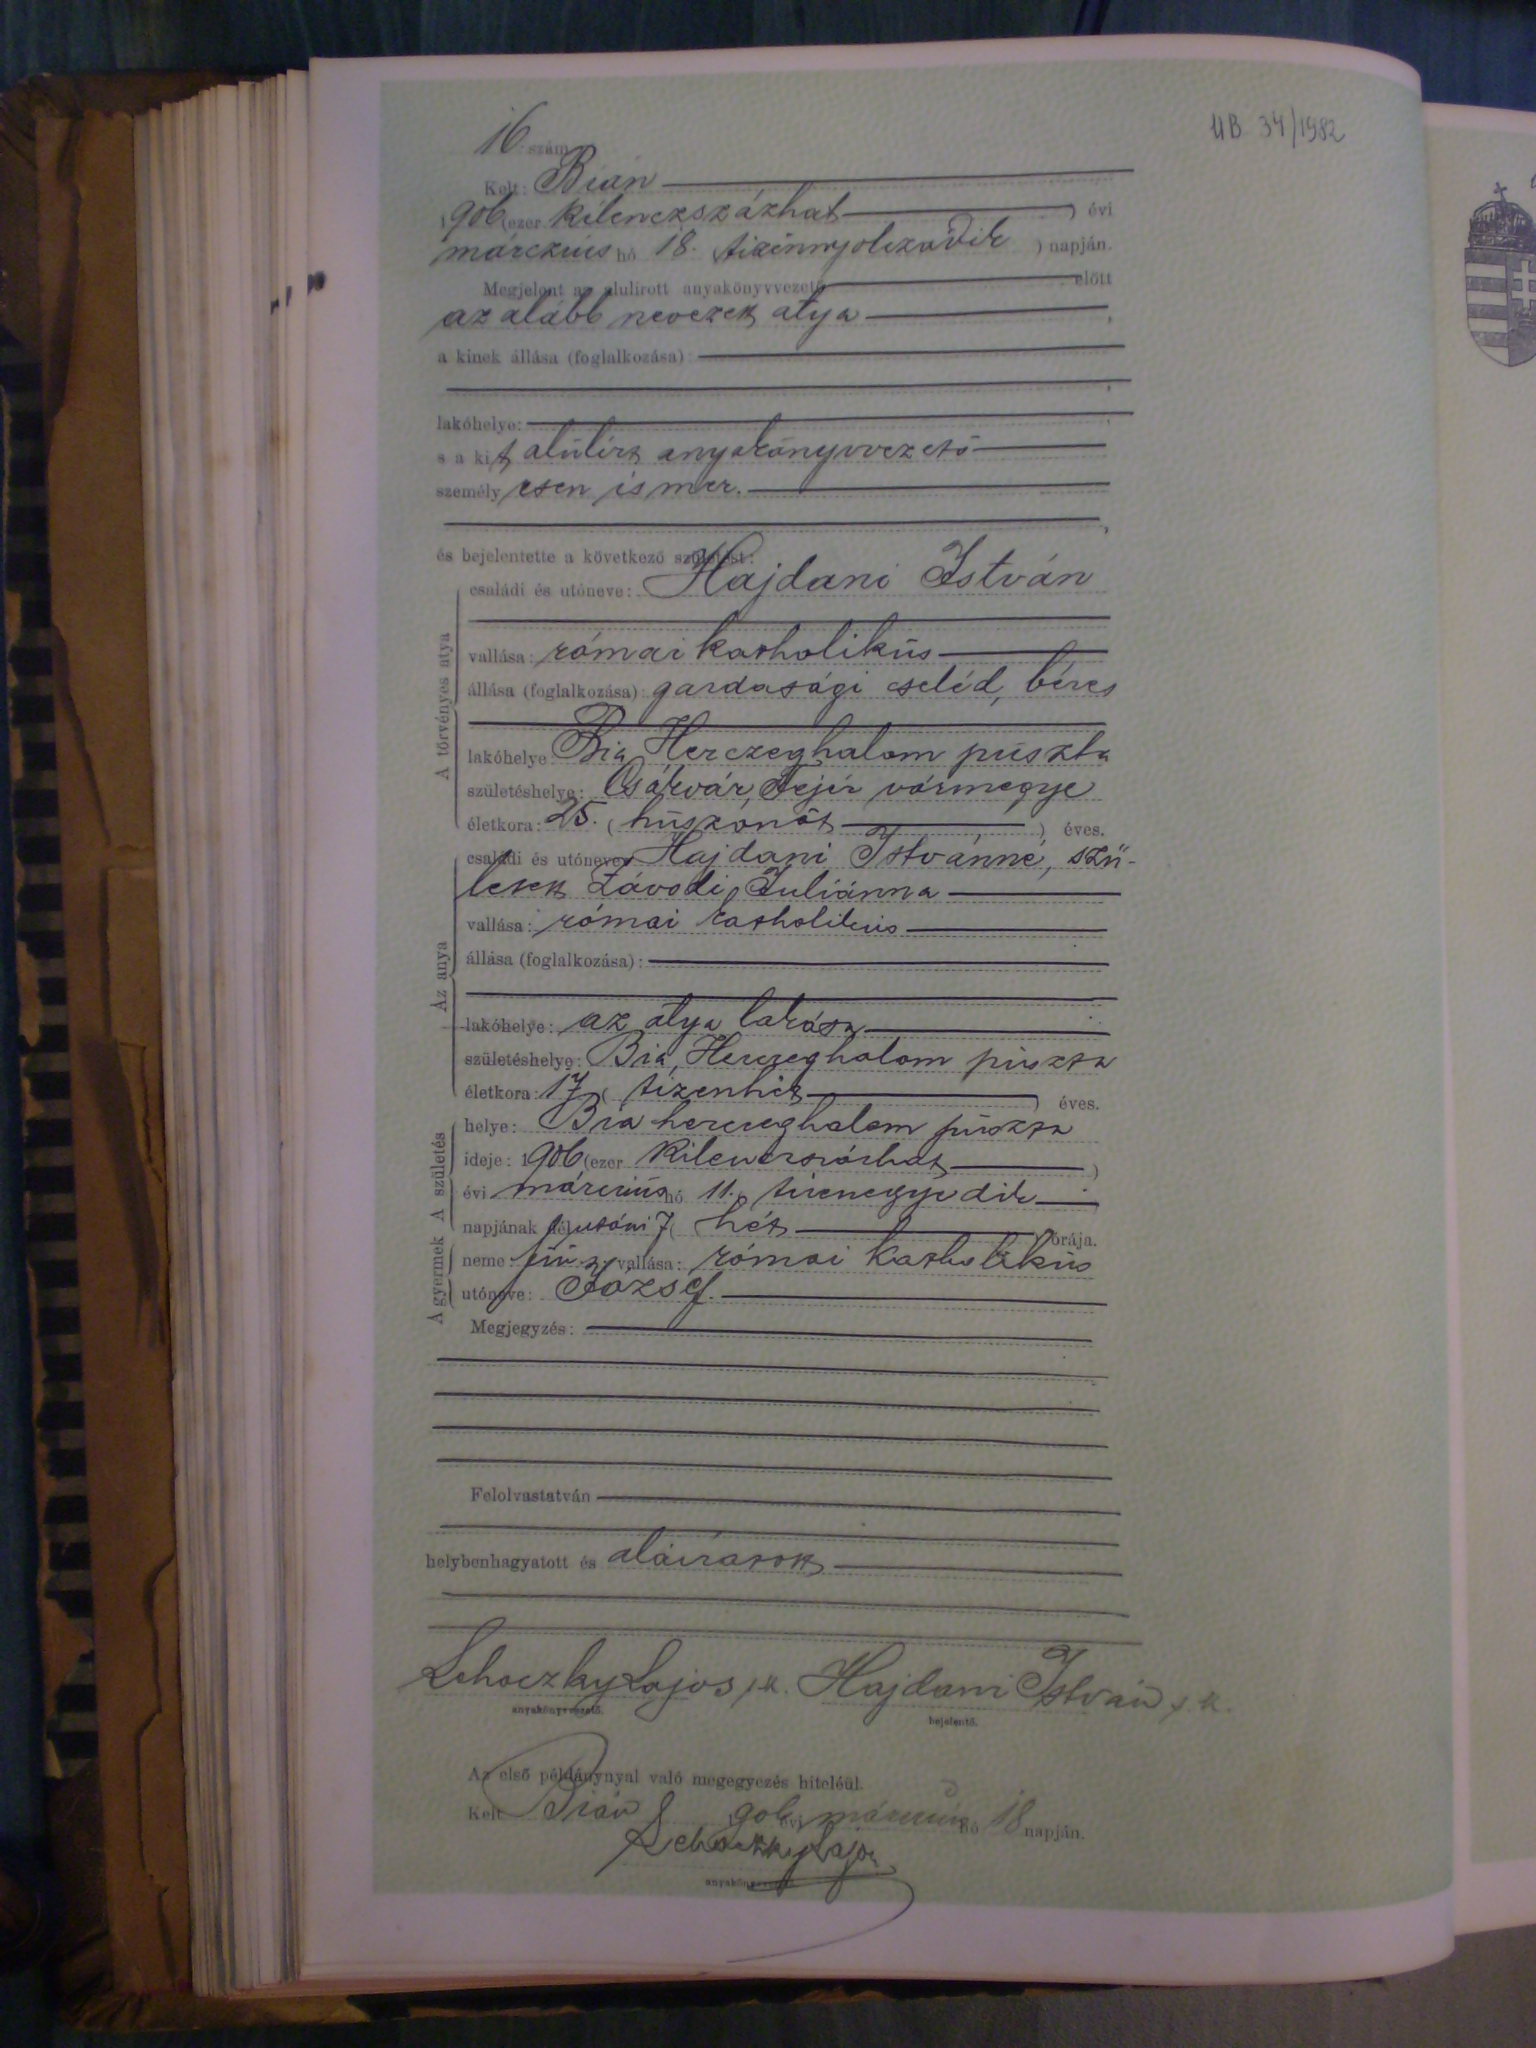 UB 34/1982
16 szám
Kelt: Bián
1906 (ezer kilenczszázhat ) évi
márczius hó 18. tizennyolczadik ) napján.
Megjelent az alulirott anyakönyvvezető előtt
az alább nevezett atya ,
a kinek állása (foglalkozása):
lakóhelye:
s a kit alúlírt anyakönyvvezető
személyesen ismer.
és bejelentette a következő születést:
A törvényes atya
családi és utóneve: Hajdani István
vallása: római katholikus
állása (foglalkozása): gazdasági cseléd, béres
lakóhelye: Bia, Herczeghalom puszta
születéshelye: Csákvár, Fejér vármegye
életkora: 25. ( huszonöt ) éves.
Az anya
családi és utóneve: Hajdani Istvánné, szü-
letett Závodi Juliánna
vallása: római katholikus
állása (foglalkozása):
lakóhelye: az atya lakása
születéshelye: Bia, Herczeghalom puszta
életkora: 17 ( tizenhét ) éves.
A születés
helye: Bia herczeghalom puszta
ideje: 1906 (ezer kilenczszázhat )
évi márczius hó 11. tizenegyedik
napjának délutáni 7 ( hét ) órája.
A gyermek
neme: fiú vallása: római katholikus
utóneve: József.
Megjegyzés:
Felolvastatván
helybenhagyatott és aláíratott
Lehoczky Lajos s.k. Hajdani István s.k.
anyakönyvvezető. bejelentő.
Az első példánynyal való megegyezés hiteléül.
Kelt Bián 1906 évi márczius hó 18 napján.
Lehoczky Lajos
anyakönyvvezető.